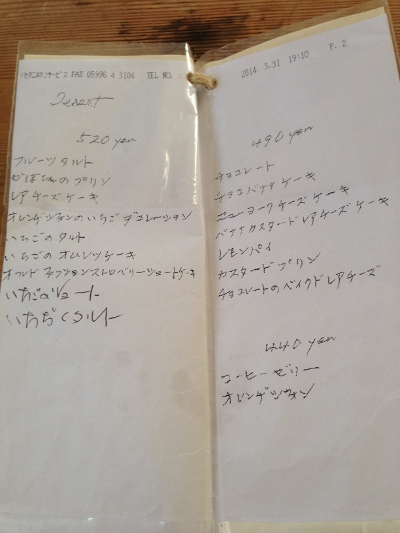 FAX 05996 4 3104 TEL NO.
Desert
520 yen
フルーツタルト
かぼちゃのプリン
レアチーズケーキ
オレンジシフォンのいちごデコレーション
いちごのタルト
いちごのオムレツケーキ
オールドファッションストロベリーショートケーキ
いちぢくタルト
2014. 3.31 19:10 P. 2
490 yen
チョコレート
チョコバナナケーキ
ニューヨークチーズケーキ
バナナカスタードレアチーズケーキ
レモンパイ
カスタードプリン
チョコレートのベイクドレアチーズ
440 yen
コーヒーゼリー
オレンジシフォン